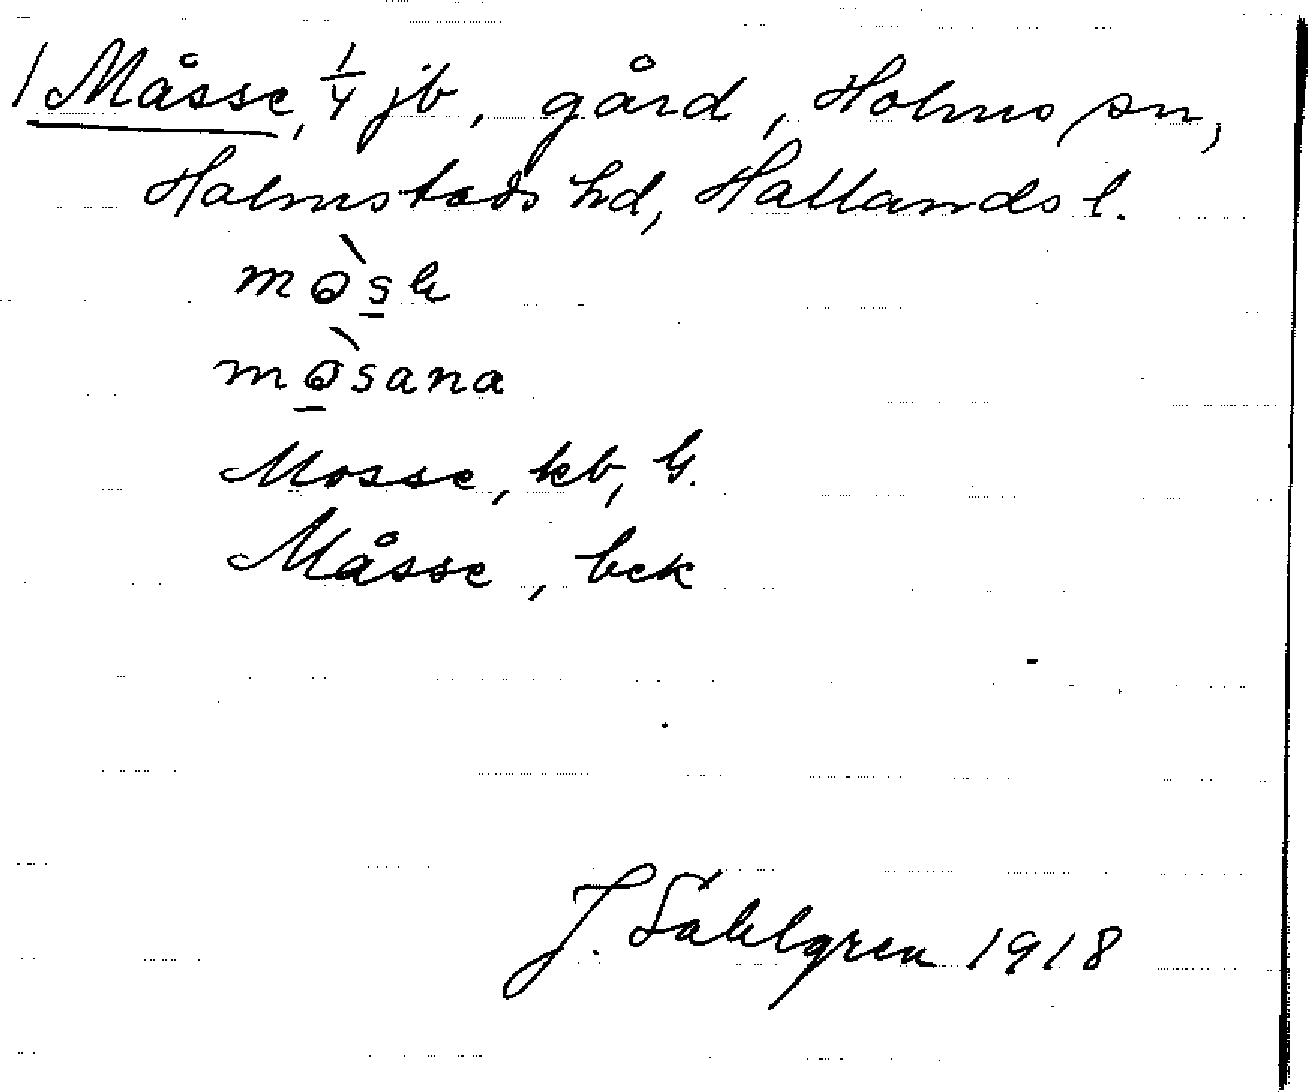 1 Måsse, 1/4 jb, gård, Holms sn,
Halmstads hd, Hallands l.
mòsana
Mosse, kb, G.
Måsse, bek
J. Sahlgren 1918